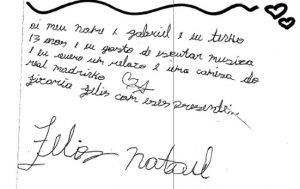 oi meu nome é gabriel e eu tenho
13 anos e eu gosto de escutar musica
e eu quero um relogio e uma camisa do
real madrid
ficaria feliz com esses presente
Feliz natal